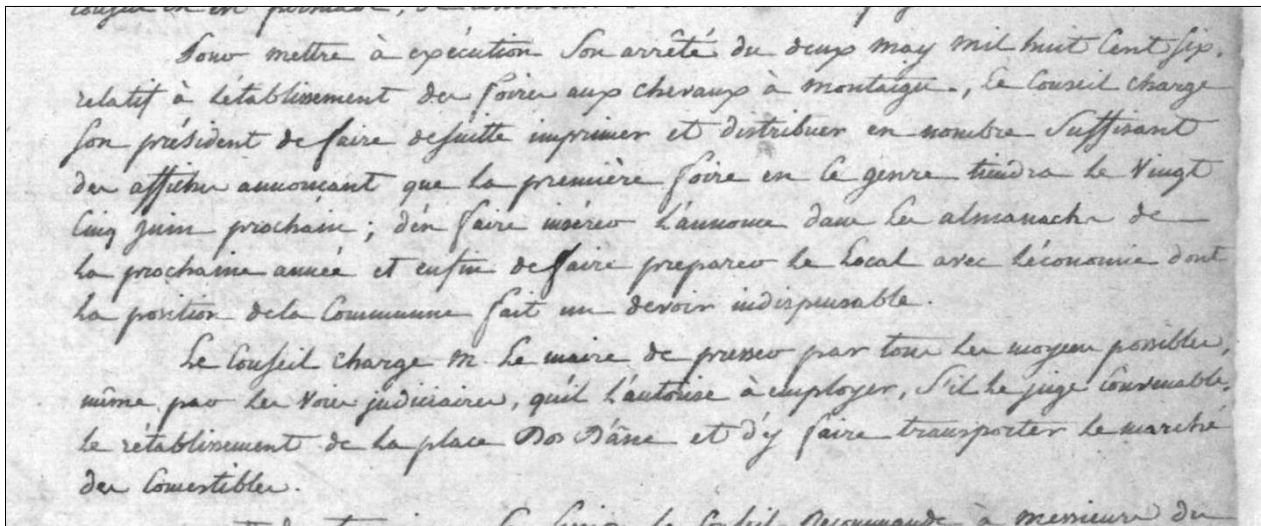 Pour mettre à exécution Son arrêté du deux may mil huit Cent Six,
relatif à l'établissement des foires aux chevaux à montaigu, Le Conseil charge
Son président de faire desuitte imprimer et distribuer en nombre Suffisant
des affiches annonçant que La première foire en Ce genre tiendra Le Vingt
Cinq juin prochain ; d'en faire insérer L'annonce dans Les almanachs de
La prochaine année et enfin de faire preparer Le Local avec L'économie dont
La position dela Commune fait un devoir indispensable.
Le Conseil charge M. Le maire de presser par tous Les moyens possibles,
même par Les Voies judiciaires, qu'il L'autorise à employer, S'il Le juge Convenable,
Le rétablissement de La place Dos D'âne et d'y faire transporter Le marché
des Comestibles.
Le Conseil Recommande à messieurs du